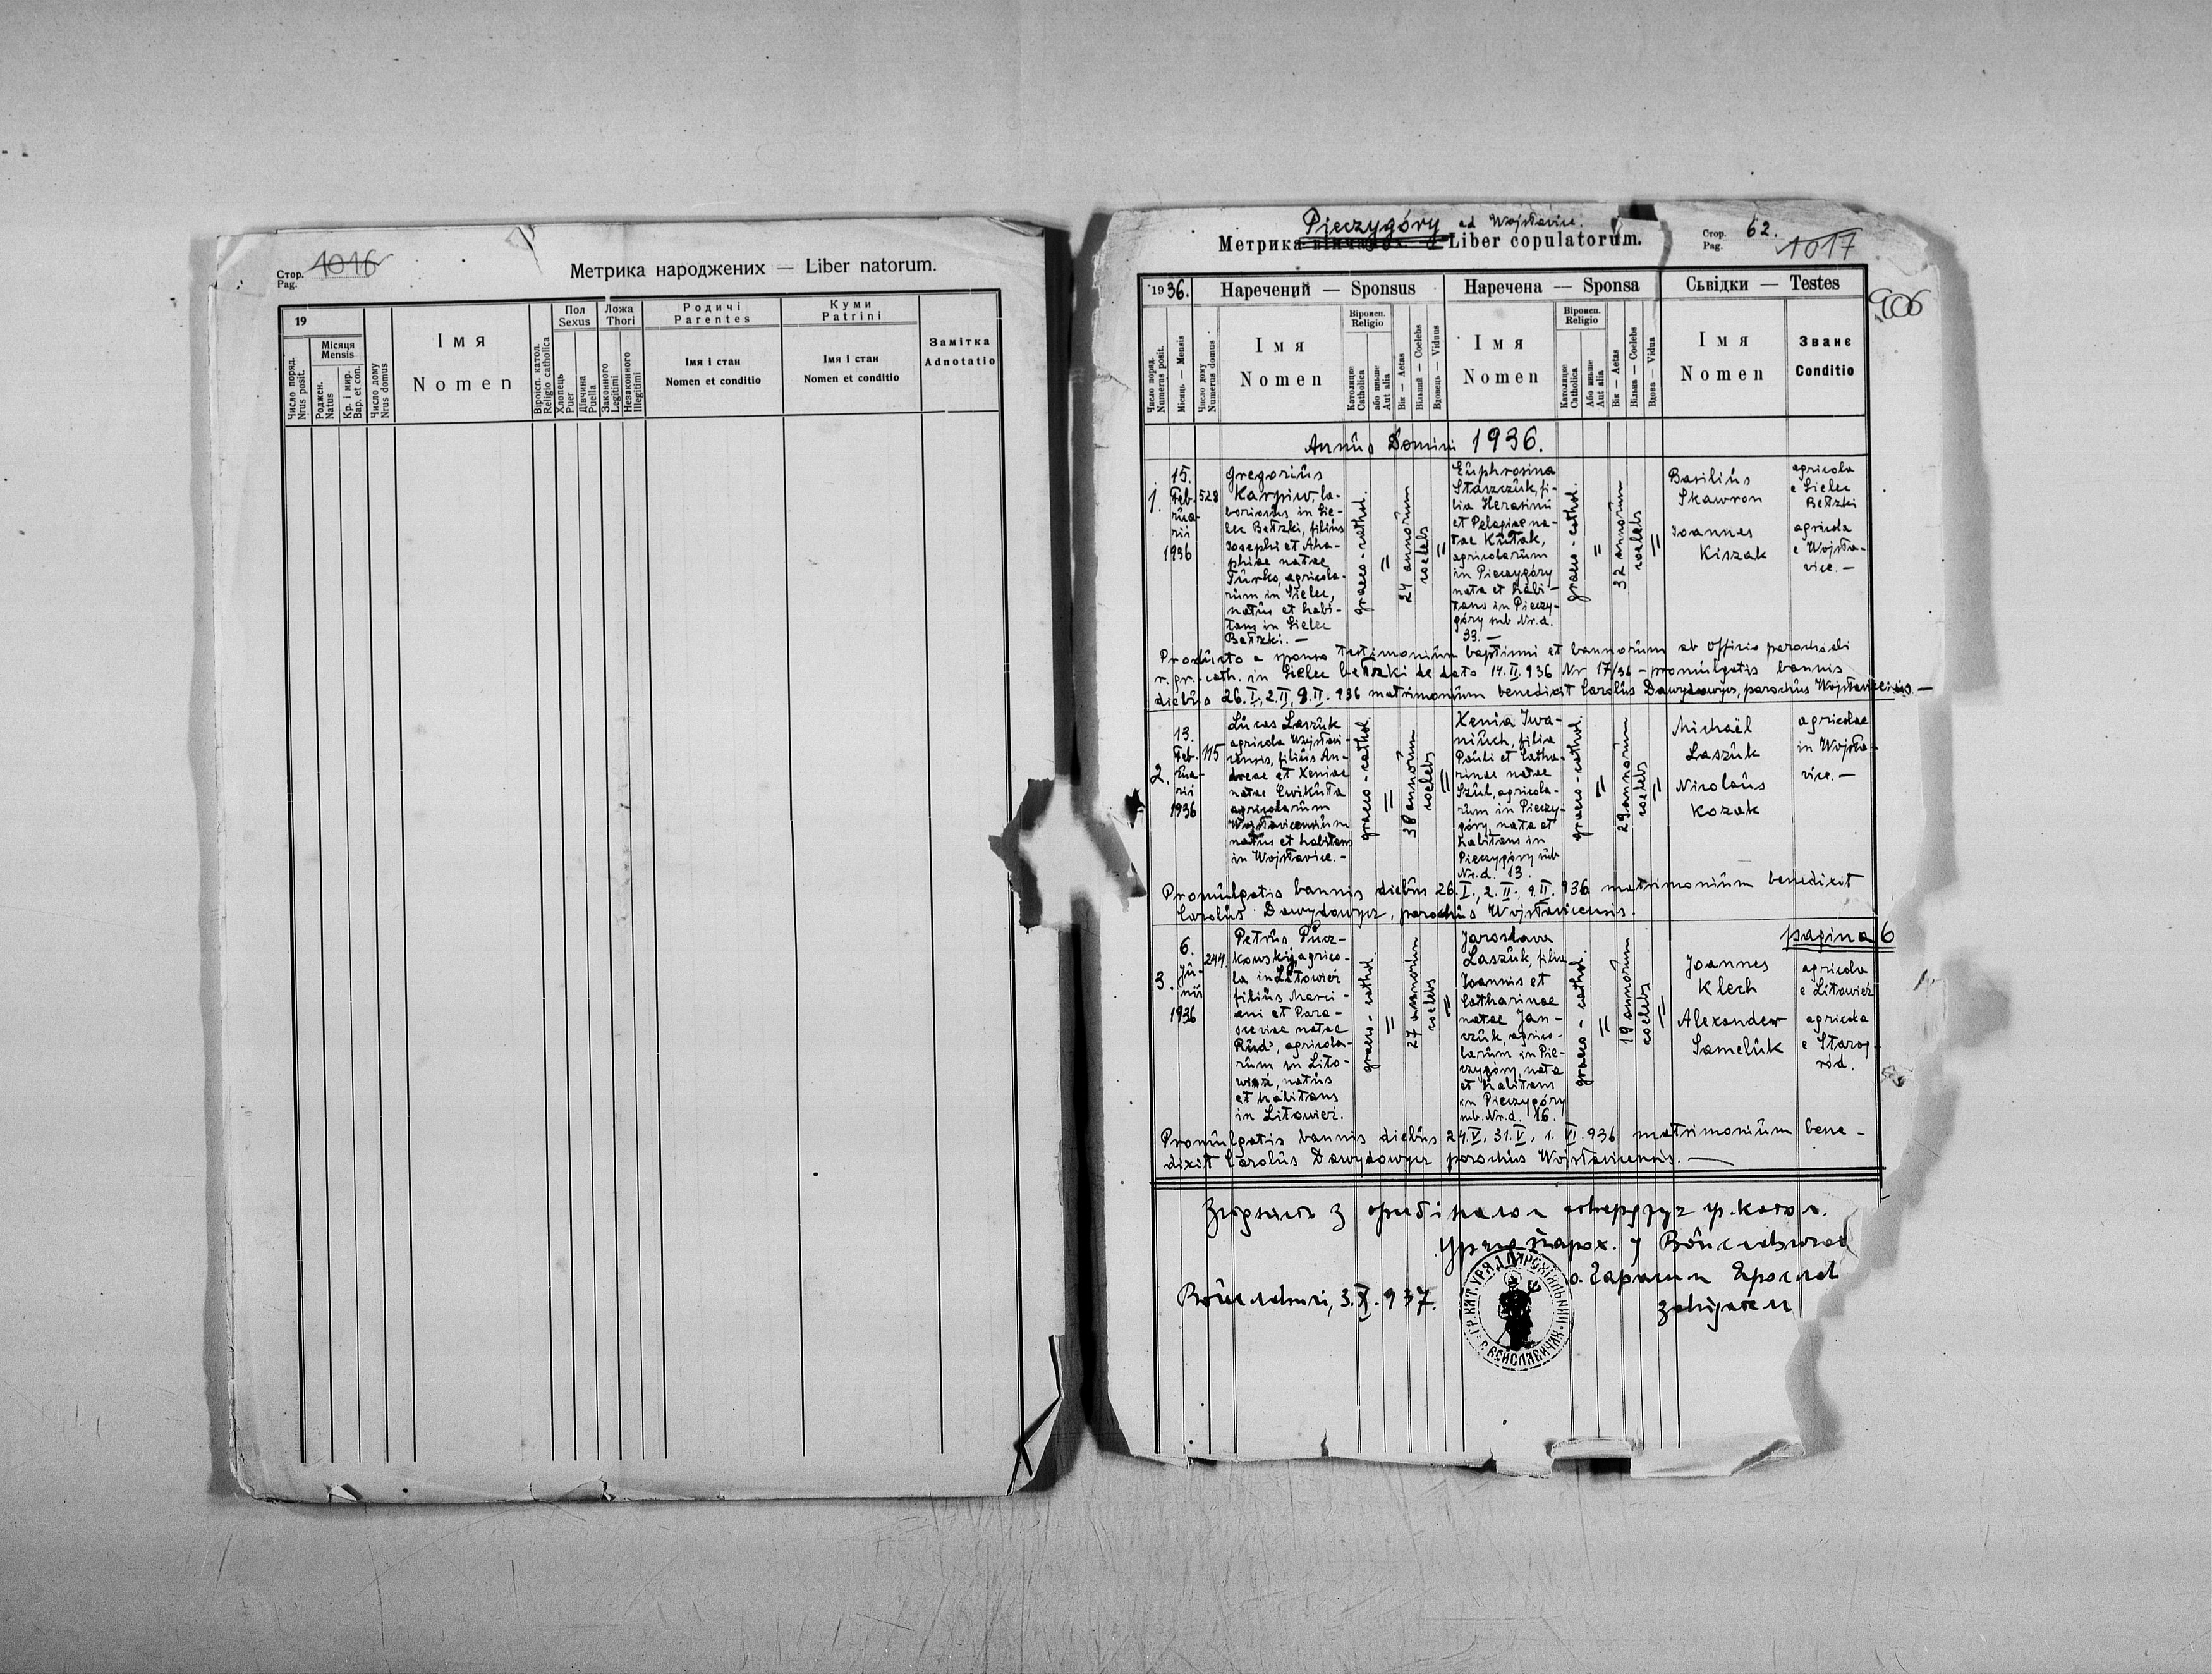 Стор. Pag. 1016
Метрика народжених — Liber natorum.
19
Число поряд. Nrus posit.
Місяця Mensis
Роджен. Natus
Кр. і мир. Bap. et con.
Число дому Nrus domus
Імя
Nomen
Віросп. катол. Religio catholica
Пол Sexus
Хлопець Puer
Дівчина Puella
Ложа Thori
Законного Legitimi
Незаконного Illegitimi
Родичі Parentes
Імя і стан
Nomen et conditio
Куми Patrini
Імя і стан
Nomen et conditio
Замітка
Adnotatio
Pieczygóry ad Wojsławice.
Метрика Liber copulatorum.
Стор. Pag. 62.
1017
906
1936.
Наречений — Sponsus
Наречена — Sponsa
Сьвідки — Testes
Число поряд. Numerus posit.
Місяць — Mensis
Число дому Numerus domus
Імя
Nomen
Віроисп. Religio
Католицке Catholica
або инше Aut alia
Вік — Aetas
Вільний — Coelebs
Вдовець — Viduus
Імя
Nomen
Віроисп. Religio
Католицке Catholica
Або инше Aut alia
Вік — Aetas
Вільна — Coelebs
Вдова — Vidua
Імя
Nomen
Званє
Conditio
Annus Domini 1936.
1.
15.
Feb-
rua-
rii
1936
528
Gregorius
Karpiw, la-
boriosus in Sie-
lec Bełzki, filius
Josephi et Aha-
phiae natae
Turko, agricola-
rum in Sielec,
natus et habi-
tans in Sielec
Bełzki. —
graeco-cathol.
=
24 annorum
coelebs
=
Euphrosina
Staszczuk, fi-
lia Herasimi
et Pelagiae na-
tae Kutak,
agricolarum
in Pieczygóry
nata et habi-
tans in Pieczy-
góry sub Nr. d.
33. —
graeco-cathol.
=
32 annorum
coelebs
=
Basilius
Skawron
Joannes
Kiszak
agricola
e Sielec
Bełzki
agricola
e Wojsła-
vice. —
Producto a sponso testimonium baptismi et bannorum ab officio parochiali
r. gr.-cath. in Sielec bełzki de dato 14.II.936 Nr 17/36 — promulgatis bannis
diebus 26.I, 2.II, 9.II. 936 matrimonium benedixit Carolus Dawydowycz, parochus Wojsłavicensis —
2.
13.
Feb-
rua-
rii
1936
115
Lucas Laszuk
agricola Wojsłavi-
censis, filius An-
dreae et Xeniae
natae Cwikuła
agricolarum
Wojsłavicensium
natus et habitans
in Wojsłavice. —
graeco-cathol.
=
38 annorum
coelebs
=
Xenia Iwa-
niuch, filia
Pauli et Catha-
rinae natae
Szul, agricola-
rum in Pieczy-
góry, nata et
habitans in
Pieczygóry sub
Nr. d. 13.
graeco-cathol.
=
29 annorum
coelebs
=
Michaël
Laszuk
Nicolaus
Kozak
agricolae
in Wojsła-
vice. —
Promulgatis bannis diebus 26.I, 2.II. 9.II. 936 matrimonium benedixit
Carolus Dawydowycz, parochus Wojsłavicensis.
pagina 6
3.
6.
Ju-
nii
1936
244.
Petrus Pucz-
kowskij, agrico-
la in Litowież
filius Marci-
ani et Para-
sceviae natae
Rud', agricola-
rum in Lito-
wież, natus
et habitans
in Litowież.
graeco-cathol.
=
27 annorum
coelebs
=
Jaroslava
Laszuk, filia
Joannis et
Catharinae
natae Jan-
czuk, agrico-
larum in Pie-
czygóry, nata
et habitans
in Pieczygóry
sub. Nr. d. 16.
graeco-cathol.
=
19 annorum
coelebs
=
Joannes
Klech
Alexander
Sameluk
agricola
e Litowież
agricola
e Starog-
ród.
Promulgatis bannis diebus 24.V, 31.V, 1.VI.936 matrimonium bene-
dixit Carolus Dawydowycz parochus Wojsłavicensis. —
з оригіналом
Уряд парох. у Войславичах
о. Гарасим Ярослав
Войславичі, 3.X.937.
завідатель
ГР. КАТ. УРЯД ПАРОХІЯЛЬНИЙ
ВОЙСЛАВИЧАХ